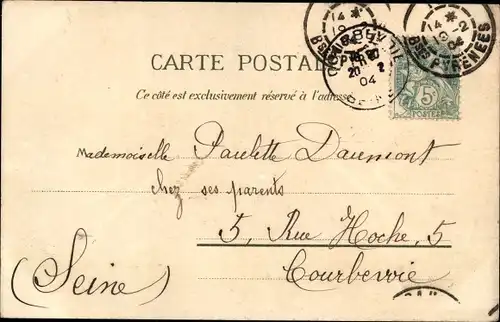 14 *
19-2
04
Bses PYRÉNÉES
14 *
Bses
COURBEVOIE
20 2
04
SEINE
5c
POSTES
CARTE POSTALE
Ce côté est exclusivement réservé à l'adresse
Mademoiselle Paulette Daumont
chez ses parents
5, Rue Hoche, 5
Courbevoie
(Seine)